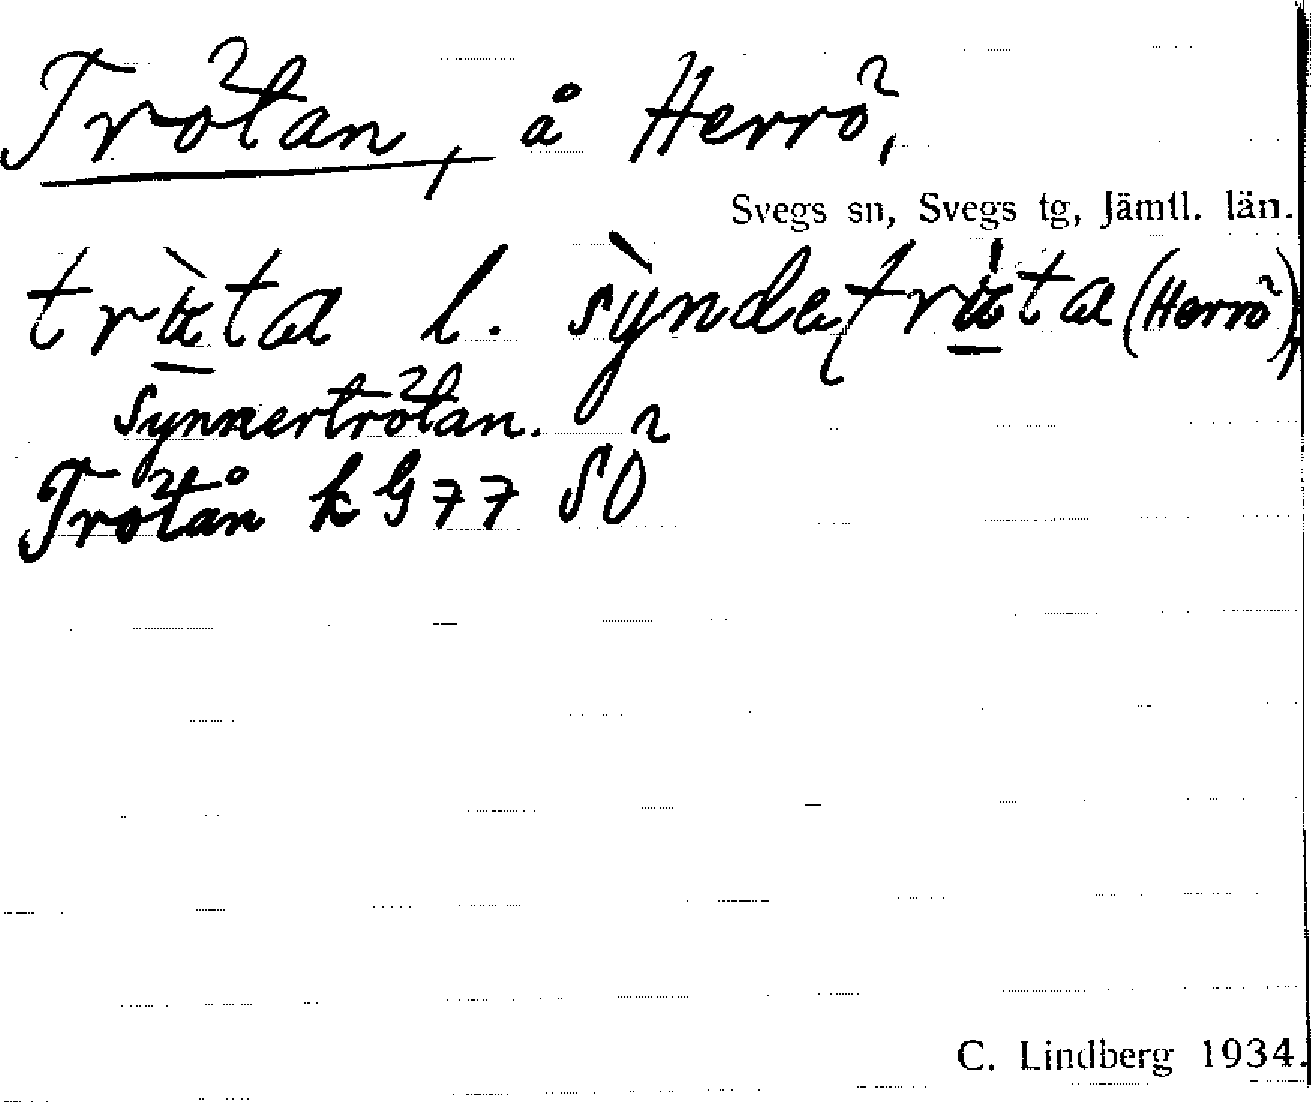 Trötan, å Herrö,
Svegs sn, Svegs tg, Jämtl. län.
l. (Herrö),
Synnertrötan.
Trötån k G 77 SÖ
C. Lindberg 1934.